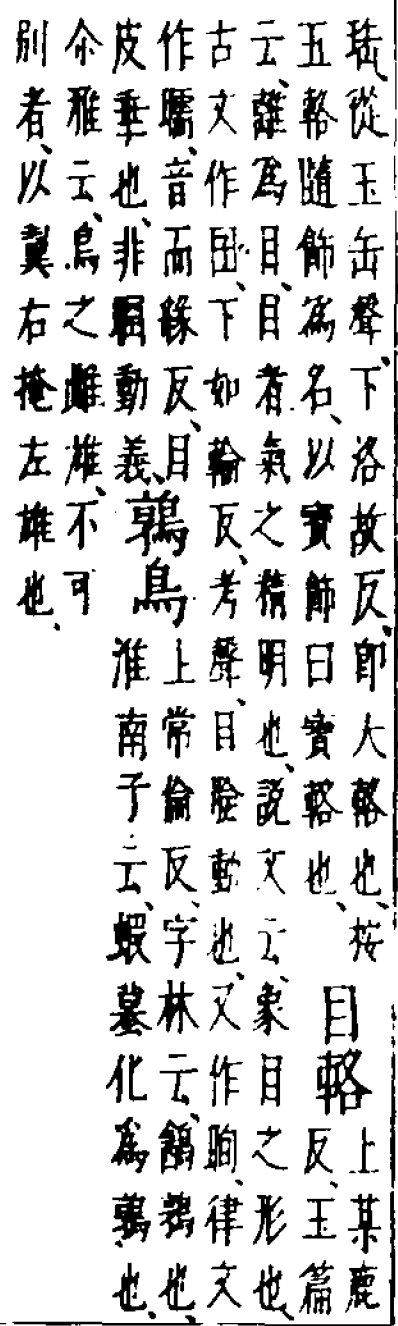 珤從玉缶聲、下洛故反、即大輅也、按
五輅隨飾為名、以寶飾曰寶輅也、
目輅
上某鹿
反、玉篇
云、離為目、目者氣之精明也、說文云、象目之形也、
古文作、下如輪反、考聲、目瞼動也、又作眴、律文
作、音而緣反、目
皮垂也、非瞤動義、
鶉鳥
上常倫反、字林云、鶕鶉也、
淮南子云、蝦蟇化為鶉也、
尒雅云、鳥之雌雄、不可
別者、以翼右掩左雄也、